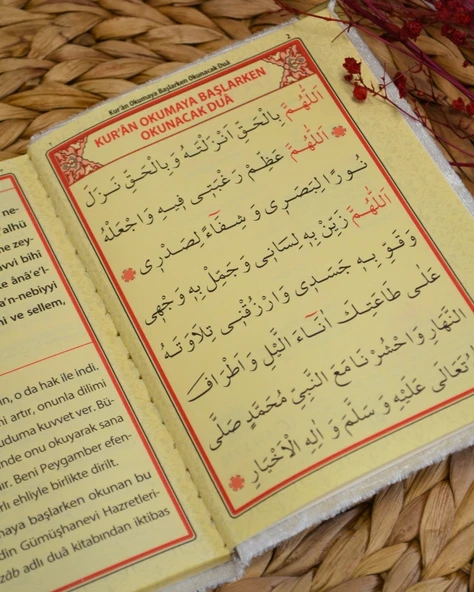 ne-
alhü
ne zey-
avvi bihî
e ânâe'l-
a'n-nebiyyi
hî ve sellem,
n, o da hak ile indi,
ni artır, onunla dilimi
uduma kuvvet ver, Bü-
nde onu okuyarak sana
dir. Beni Peygamber efen-
rlı ehliyle birlikte dirilt.
maya başlarken okunan bu
din Gümüşhanevi Hazretleri-
zâb adlı duâ kitabından iktibas
Kur'ân Okumaya Başlarken Okunacak Duâ 2
KUR'ÂN OKUMAYA BAŞLARKEN
OKUNACAK DUÂ
اَللّٰهُمَّ بِالْحَقِّ اَنْزَلْتَهُ وَبِالْحَقِّ نَزَلَ
اَللّٰهُمَّ عَظِّمْ رَغْبَتِى فِيهِ وَاجْعَلْهُ
نُورًا لِبَصَرِى وَشِفَاءً لِصَدْرِى
اَللّٰهُمَّ زَيِّنْ بِهِ لِسَانِى وَجَمِّلْ بِهِ وَجْهِى
وَقَوِّ بِهِ جَسَدِى وَارْزُقْنِى تِلَاوَتَهُ
عَلٰى طَاعَتِكَ اٰنَاءَ الَّيْلِ وَاَطْرَافَ
النَّهَارِ وَاحْشُرْنَا مَعَ النَّبِيِّ مُحَمَّدٍ صَلَّى
تَعَالٰى عَلَيْهِ وَسَلَّمَ وَاٰلِهِ الْاَخْيَارِ